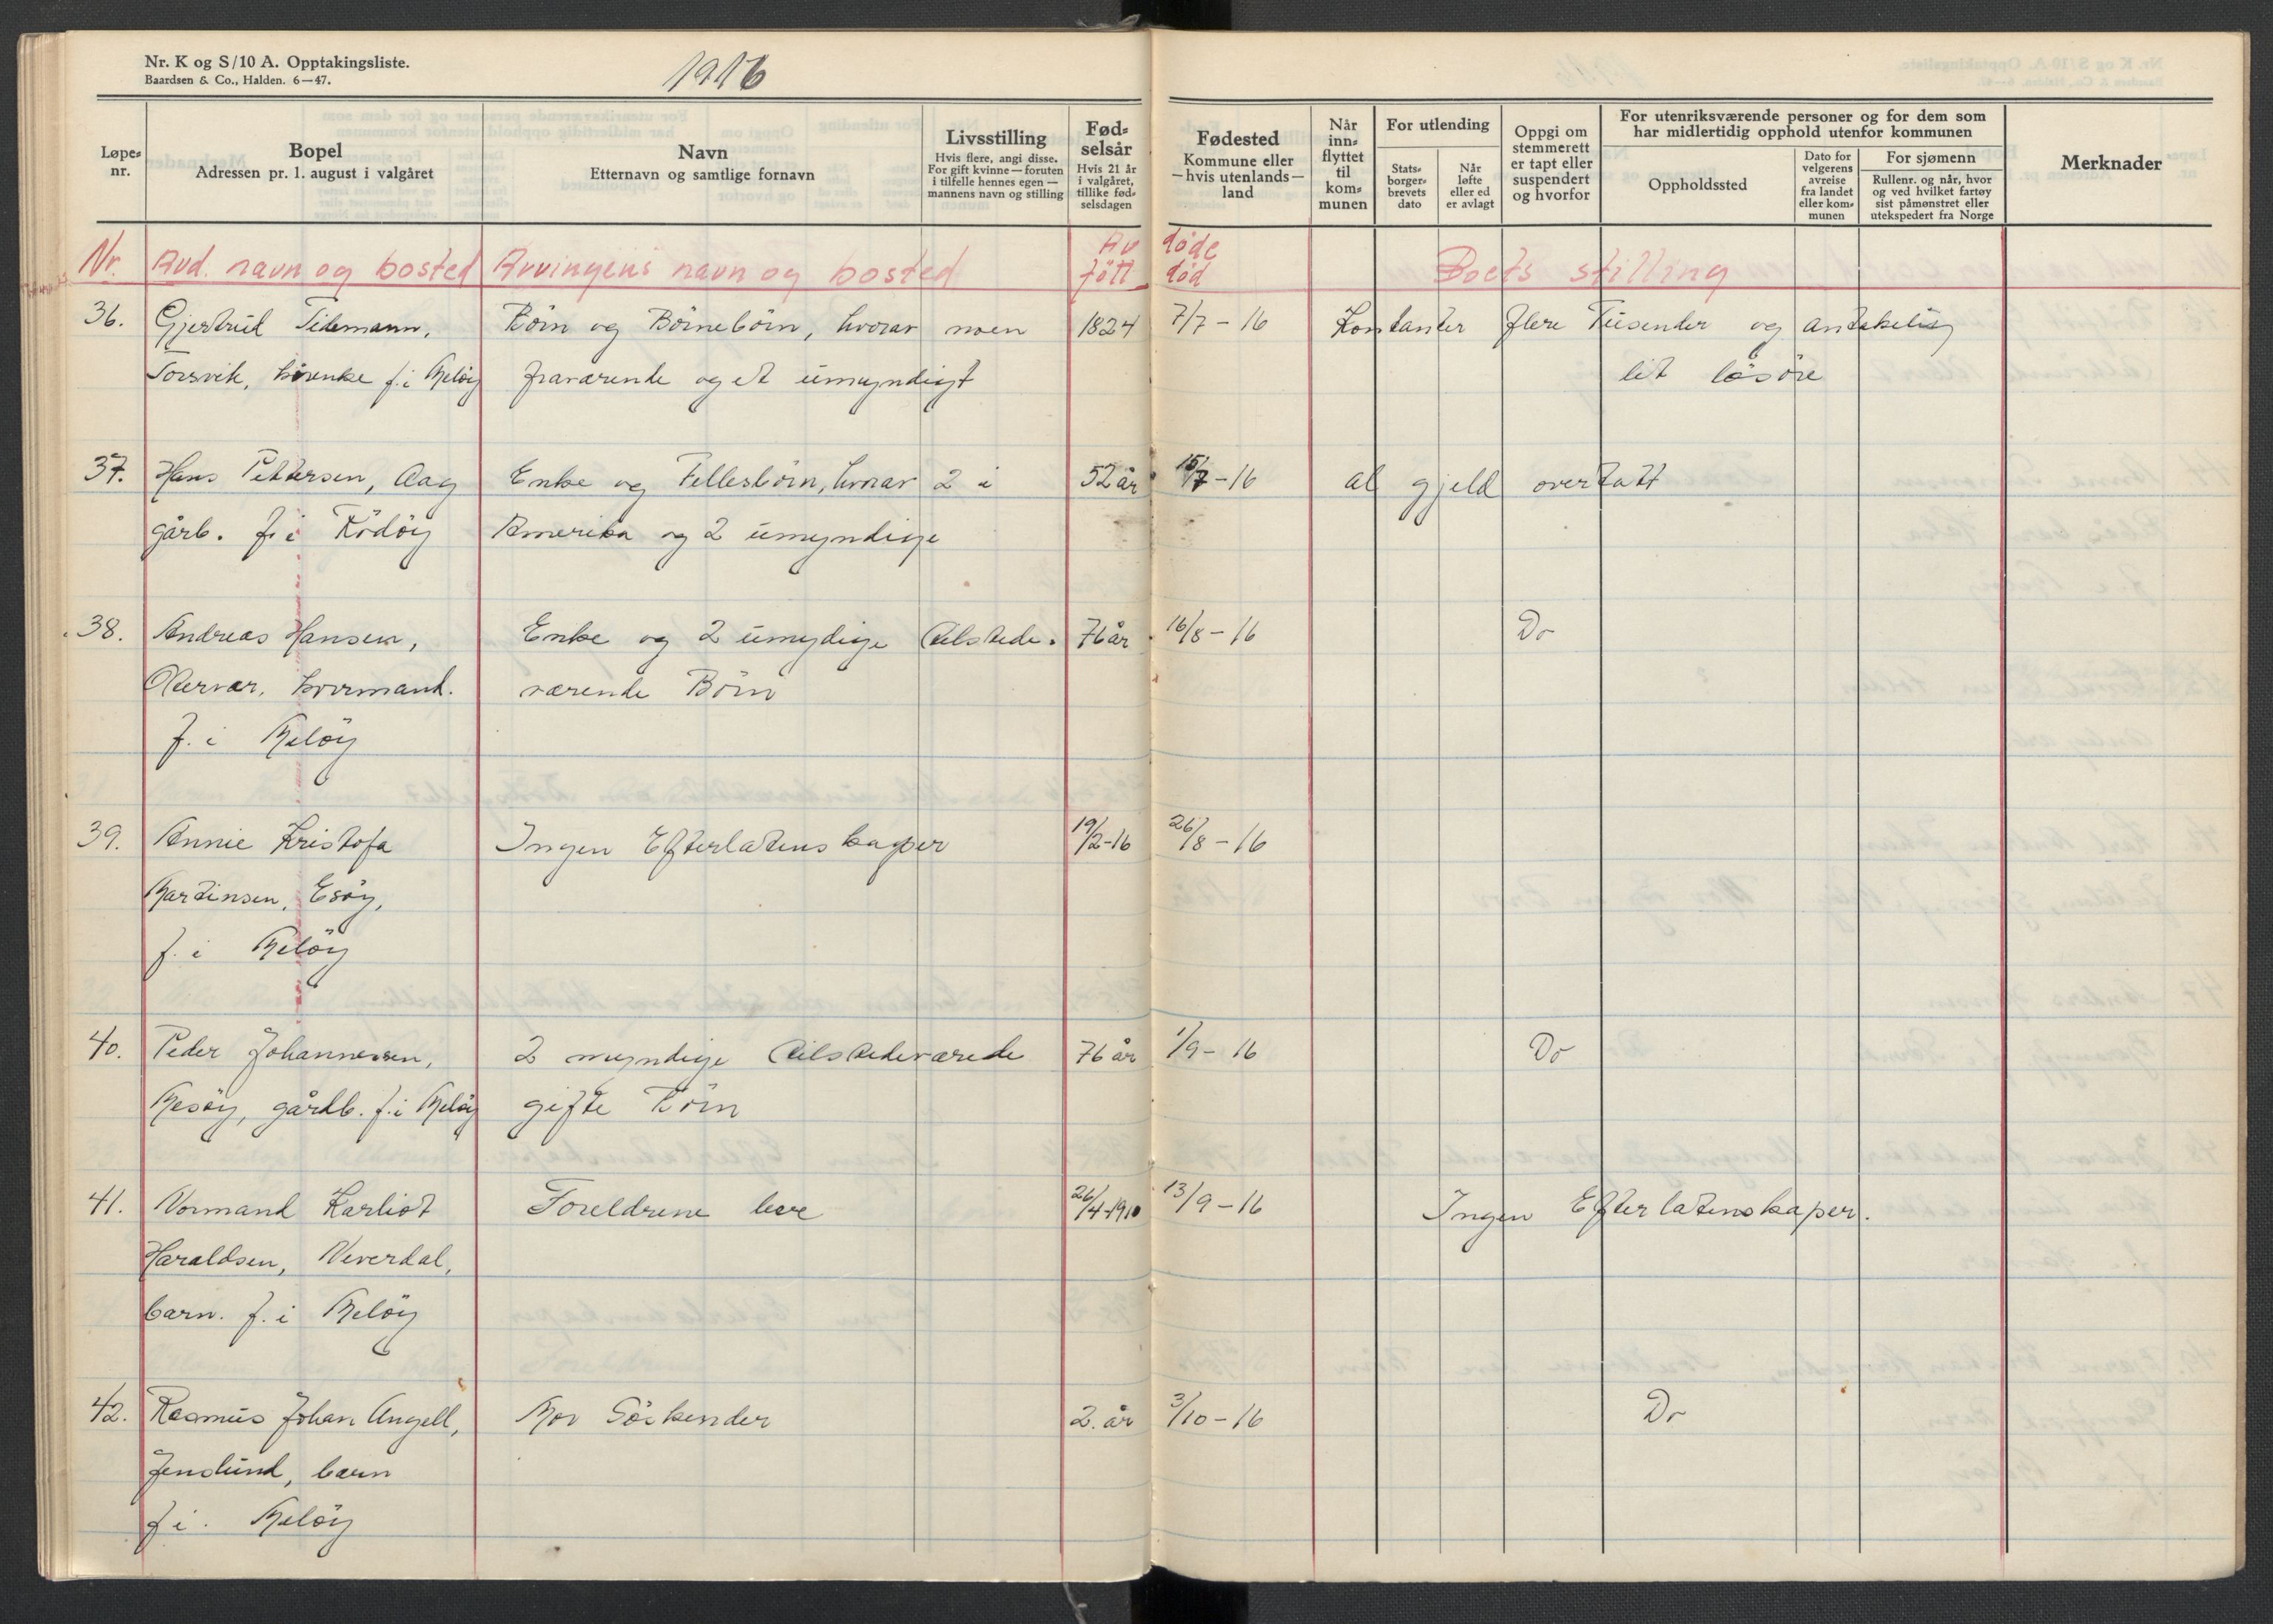 Nr. K og S/10 A. Opptakingsliste.
Baardsen & Co., Halden. 6—47.
1916
Løpe-nr.
Bopel
Adressen pr. 1. august i valgåret
Navn
Etternavn og samtlige fornavn
Livsstilling
Hvis flere, angi disse.
For gift kvinne — foruten
i tilfelle hennes egen —
mannens navn og stilling
Fød-
selsår
Hvis 21 år
i valgåret,
tillike fød-
selsdagen
Fødested
Kommune eller
— hvis utenlands —
land
Når
inn-
flyttet
til
kom-
munen
For utlending
Stats-
borger-
brevets
dato
Når
løfte
eller ed
er avlagt
Oppgi om
stemmerett
er tapt eller
suspendert
og hvorfor
For utenriksværende personer og for dem som
har midlertidig opphold utenfor kommunen
Oppholdssted
Dato for
velgerens
avreise
fra landet
eller kom-
munen
For sjømenn
Rullenr. og når, hvor
og ved hvilket fartøy
sist påmønstret eller
utekspedert fra Norge
Merknader
Av døde
Nr. Avd. navn og bosted Arvingens navn og bosted født død Boets stilling
36. Gjertrud Tidemann, Börn og Börnebörn, hvorav noen 1824 7/7 - 16 Kontanter flere Tusender og antakelig
Torsvik, enke f. i Melöy fraværende og et umyndigt lit lösöre
37. Hans Pettersen, Aag Enke og Fellesbörn, hvorav 2 i 52 år 15/7 - 16 al gjeld overtatt
gårb. f. i Rödöy Amerika og 2 umyndige
38. Andreas Hansen, Enke og 2 umydige tilstede- 76 år 16/8 - 16 Do
Otervær, kårmand. værende Börn
f. i Melöy
39. Annie Kristofa Ingen Efterlatenskaper 19/2-16 26/8 - 16
Martinsen, Esöy,
f. i Melöy
40. Peder Johannessen, 2 myndige tilstedeværede 76 år 1/9 - 16 Do
Mesöy, gårdb. f. i Melöy gifte Börn
41. Normand Karliot Foreldrene leve 26/4-1910 13/9 - 16 Ingen Efterlatenskaper.
Haraldsen, Neverdal,
barn. f. i Melöy
42. Rasmus Johan Angell, Mor Söskender 2. år 3/10 - 16 Do
Jenslund, barn
f i. Melöy